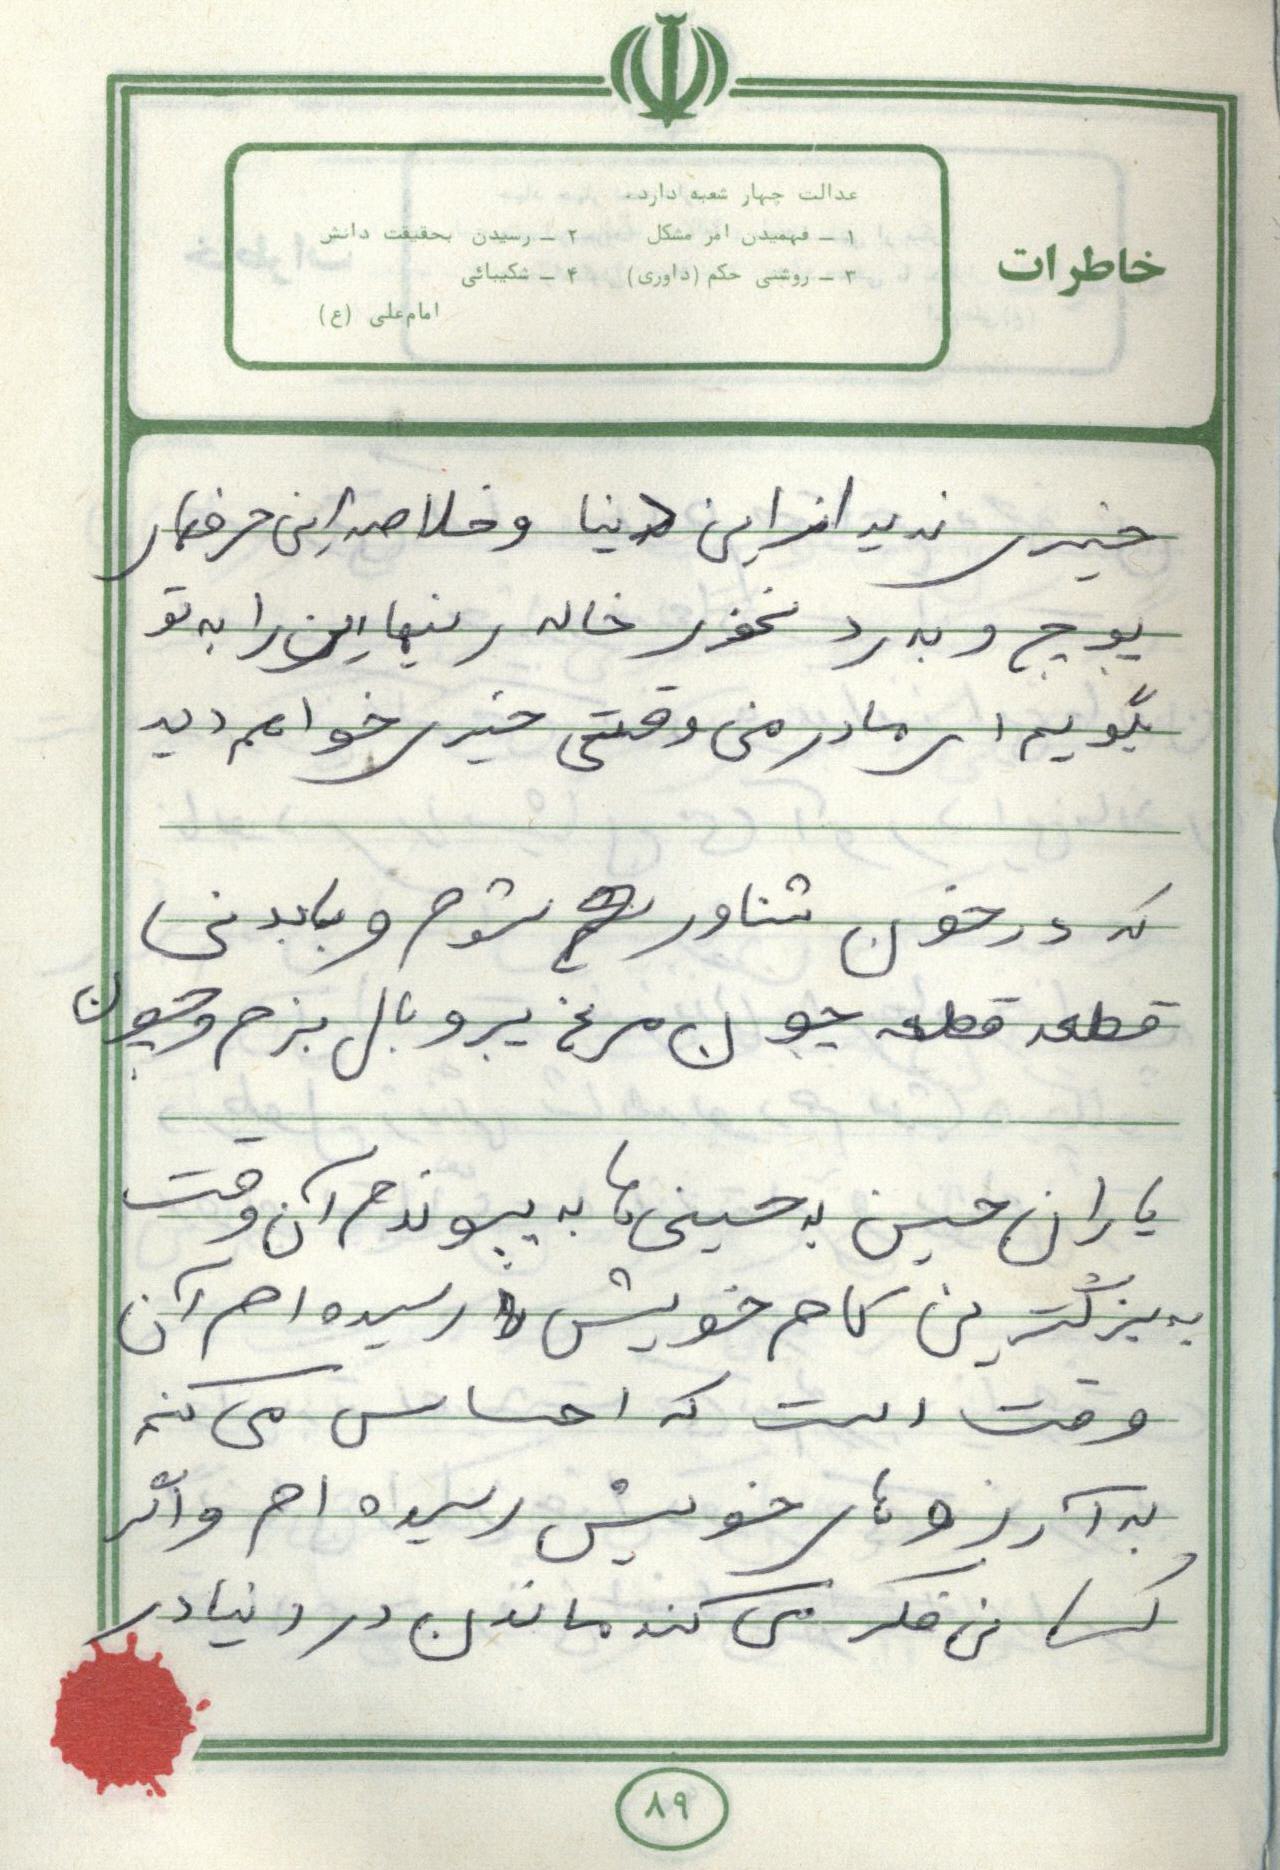 خاطرات
عدالت چهار شعبه دارد.
۱ – فهمیدن امر مشکل ۲ – رسیدن بحقیقت دانش
۳ – روشنی حکم (داوری) ۴ – شکیبائی
امام‌علی (ع)
خیری ندید از این دنیا و خلاصه این حرفهای
پوچ و به درد نخور خاله زنیها این را به تو
بگویم ای مادر من وقتی خیری خواهم دید
که در خون شناور شوم و با بدنی
قطعه قطعه چون مرغ پر و بال بزنم و چون
یاران حسین به حسینی ها به پیوندم آن وقت
به بزرگترین کام خویش رسیده ام آن
وقت است که احساس می کنم
به آرزوهای خویش رسیده ام و اگر
کسانی فکر می کنند ماندن در دنیا در
۸۹